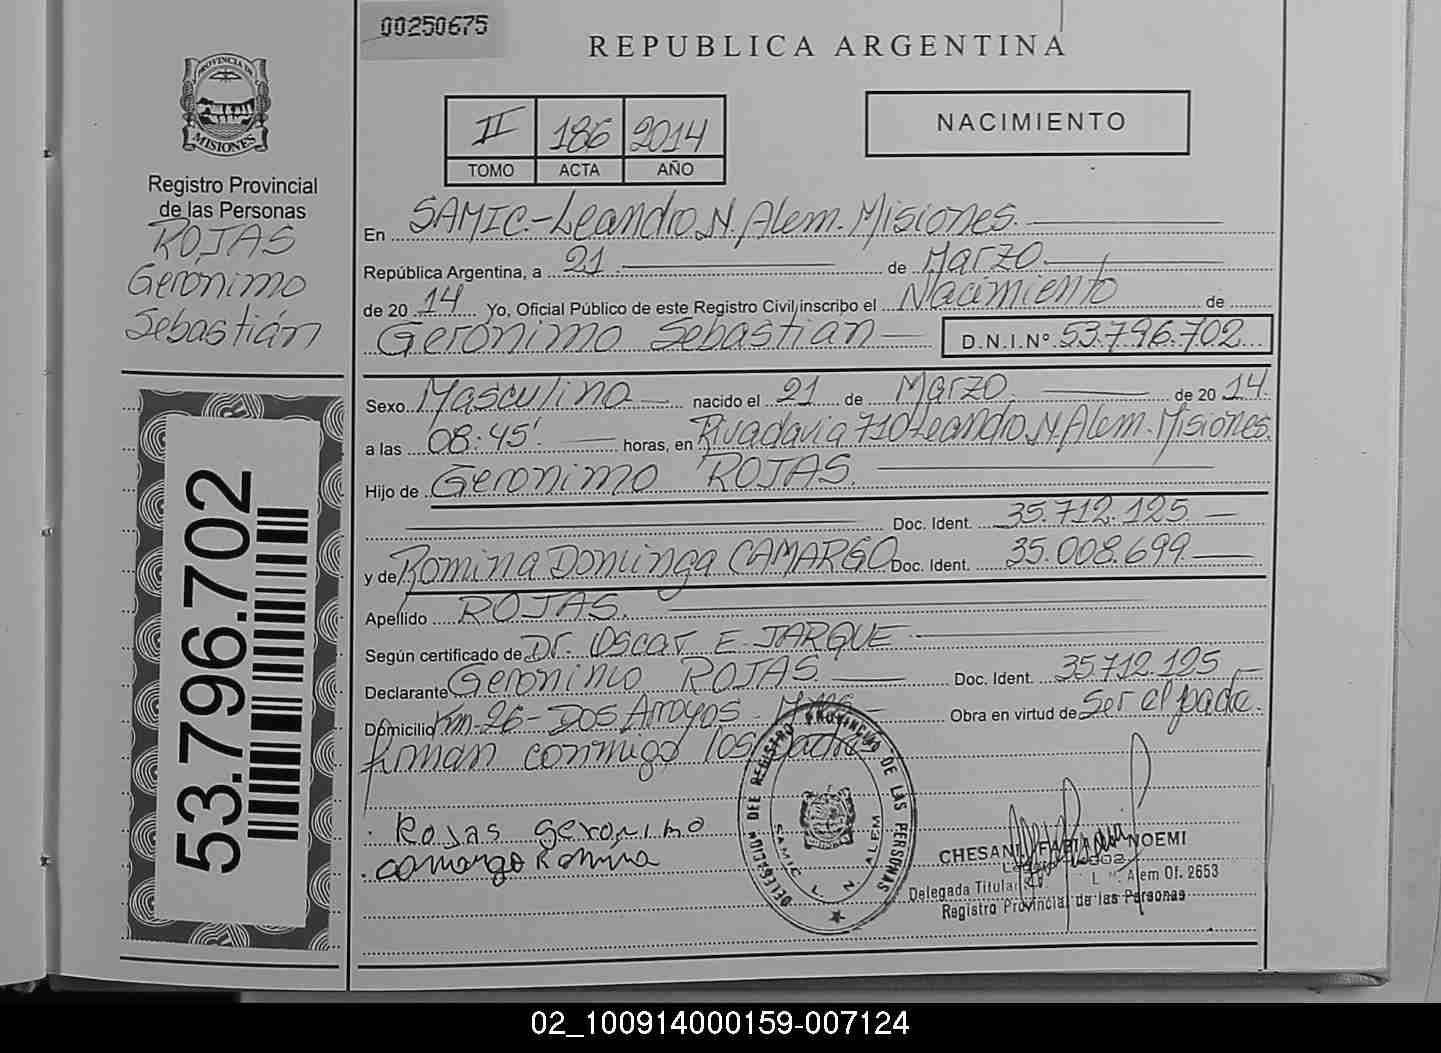 00250675
REPUBLICA ARGENTINA
PROVINCIA DE
MISIONES
Registro Provincial
de las Personas
ROJAS
Geronimo
Sebastián
53.796.702
II 186 2014
TOMO ACTA AÑO
NACIMIENTO
En SAMIC.-Leandro N. Alem. Misiones.
República Argentina, a 21 de Marzo
de 2014 Yo, Oficial Público de este Registro Civil, inscribo el Nacimiento de
Geronimo Sebastian D.N.I.Nº 53.796.702
Sexo Masculino nacido el 21 de Marzo de 2014.
a las 08:45'. horas, en Rivadavia 710 Leandro N. Alem. Misiones.
Hijo de Geronimo ROJAS.
Doc. Ident. 35.712.125
y de Romina Dominga CAMARGO Doc. Ident. 35.008.699
Apellido ROJAS.
Según certificado de Dr. Oscar E. JARQUE
Declarante Geronimo ROJAS Doc. Ident. 35.712.125
Domicilio Km-26-Dos Arroyos. Obra en virtud de Ser el padre.
Firman conmigo los padre
Rojas geronimo
camargo Romina
DELEGACION DEL REGISTRO PROVINCIAL DE LAS PERSONAS
SAMIC L. N. ALEM
CHESANI, FABIANA NOEMI
Delegada Titular L. N. Alem Of. 2653
Registro Provincial de las Personas
02_100914000159-007124